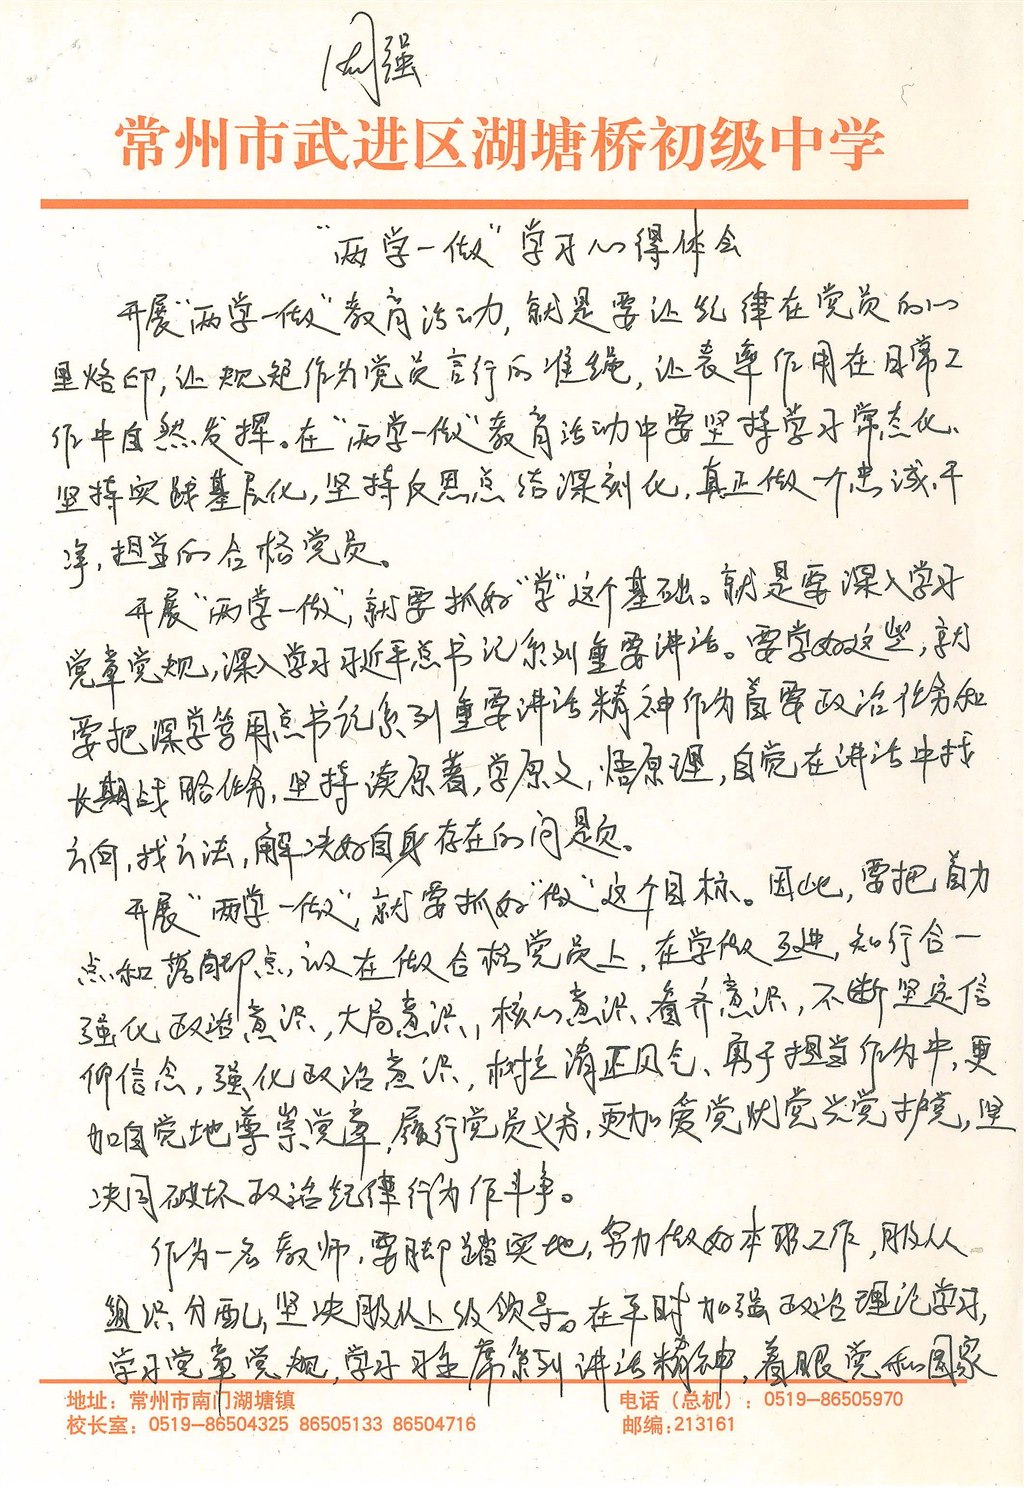 周强
常州市武进区湖塘桥初级中学
“两学一做”学习心得体会
开展“两学一做”教育活动，就是要让纪律在党员的心
里烙印，让规矩作为党员言行的准绳，让表率作用在日常工
作中自然发挥。在“两学一做”教育活动中要坚持学习常态化、
坚持实践基层化，坚持反思总结深刻化，真正做一个忠诚、干
净，担当的合格党员。
开展“两学一做”，就要抓好“学”这个基础。就是要深入学习
党章党规，深入学习习近平总书记系列重要讲话。要学好这些，就
要把深学笃用总书记系列重要讲话精神作为首要政治任务和
长期战略任务，坚持读原著，学原文，悟原理，自觉在讲话中找
方向，找方法，解决好自身存在的问题。
开展“两学一做”，就要抓好“做”这个目标。因此，要把着力
点和落脚点，放在做合格党员上，在学做互进，知行合一
强化政治意识，大局意识，核心意识、看齐意识，不断坚定信
仰信念，强化政治意识，树立清正风气、勇于担当作为中，更
加自觉地尊崇党章，履行党员义务，更加爱党忧党兴党护党，坚
决同破坏政治纪律行为作斗争。
作为一名教师，要脚踏实地，努力做好本职工作，服从
组织分配，坚决服从上级领导。在平时加强政治理论学习，
学习党章党规，学习习主席系列讲话精神，着眼党和国家
地址：常州市南门湖塘镇 电话（总机）：0519—86505970
校长室：0519—86504325 86505133 86504716 邮编:213161